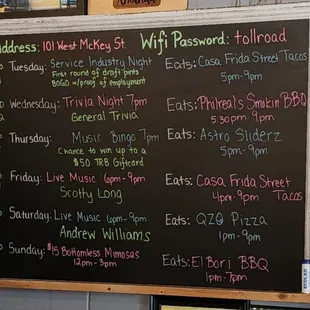 Address: 101 West McKey St. Wifi Password: tollroad
Tuesday: Service Industry Night
First round of draft pints
BOGO w/proof of employment
Eats: Casa Frida Street Tacos
5pm-9pm
Wednesday: Trivia Night 7pm
General Trivia
Eats: Philreal's Smokin BBQ
5:30pm-9pm
Thursday: Music Bingo 7pm
Chance to win up to a
$50 TRB Giftcard
Eats: Astro Sliderz
5pm-9pm
Friday: Live Music 6pm-9pm
Scotty Long
Eats: Casa Frida Street
4pm-9pm Tacos
Saturday: Live Music 6pm-9pm
Andrew Williams
Eats: QZO Pizza
1pm-9pm
Sunday: $15 Bottomless Mimosas
12pm-3pm
Eats: El Bori BBQ
1pm-7pm